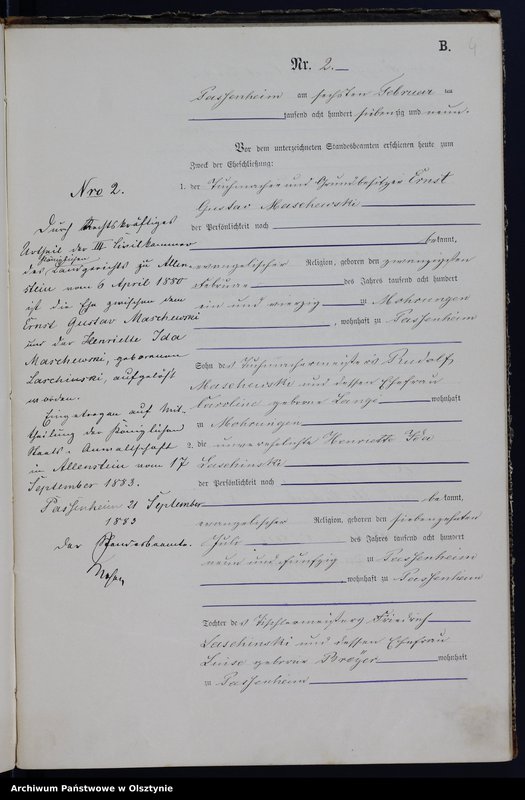 B.
4
Nr. 2.
Passenheim am sechsten Februar ein
tausend acht hundert siebenzig und neun.
Vor dem unterzeichneten Standesbeamten erschienen heute zum
Zweck der Eheschließung:
1. der Tuchmacher und Grundbesitzer Ernst
Gustav Maschewski
der Persönlichkeit nach
bekannt,
evangelischer Religion, geboren den zwanzigsten
Februar des Jahres tausend acht hundert
ein und vierzig zu Mohrungen
, wohnhaft zu Passenheim
Sohn des Tuchmachermeisters Rudolf
Maschewski und dessen Ehefrau
Caroline geborne Lange wohnhaft
zu Mohrungen
2. die unverehelichte Henriette Ida
Laschinski
der Persönlichkeit nach
bekannt,
evangelischer Religion, geboren den siebenzehnten
Juli des Jahres tausend acht hundert
neun und fünfzig zu Passenheim
, wohnhaft zu Passenheim
Tochter des Tischlermeisters Friedrich
Laschinski und dessen Ehefrau
Luise geborne Bröyer wohnhaft
zu Passenheim
Nro 2.
Durch Rechtskräftiges
Urtheil der III. Civilkammer
des Königlichen Landgerichts zu Allen-
stein vom 6 April 1880
ist die Ehe zwischen dem
Ernst Gustav Maschewski
und der Henriette Ida
Maschewski, geborenen
Laschinski, aufgelöst
worden.
Eingetragen auf Mit-
theilung der Königlichen
Staats-Anwaltschaft
in Allenstein vom 17
September 1883.
Passenheim 21 September
1883
Der Standesbeamte.
Archiwum Państwowe w Olsztynie